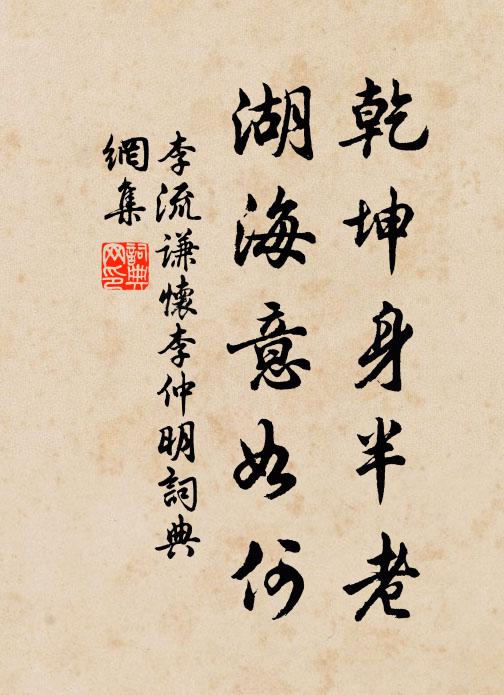 乾坤身半老
湖海意如何
李流謙懷李仲明詞典
網集
詞典
网印